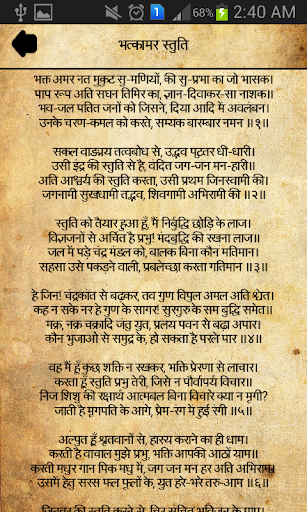 68% 2:40 AM
भत्कामर स्तुति
भक्त अमर नत मुकुट सु-मणियों, की सु-प्रभा का जो भासक।
पाप रूप अति सघन तिमिर का, ज्ञान-दिवाकर-सा नाशक॥
भव-जल पतित जनों को जिसने, दिया आदि में अवलंबन।
उनके चरण-कमल को करते, सम्यक बारम्बार नमन ॥१॥
सकल वाङ्मय तत्वबोध से, उद्भव पटुतर धी-धारी।
उसी इंद्र की स्तुति से है, वंदित जग-जन मन-हारी॥
अति आश्चर्य की स्तुति करता, उसी प्रथम जिनस्वामी की।
जगनामी सुखधामी तद्भव, शिवगामी अभिरामी की ॥२॥
स्तुति को तैयार हुआ हूँ, मैं निर्बुद्धि छोड़ि के लाज।
विज्ञजनों से अर्चित है प्रभु! मंदबुद्धि की रखना लाज॥
जल में पड़े चंद्र मंडल को, बालक बिना कौन मतिमान।
सहसा उसे पकड़ने वाली, प्रबलेच्छा करता गतिमान ॥३॥
हे जिन! चंद्रकांत से बढ़कर, तव गुण विपुल अमल अति श्वेत।
कह न सके नर हे गुण के सागर! सुरगुरु के सम बुद्धि समेत॥
मक्र, नक्र चक्रादि जंतु युत, प्रलय पवन से बढ़ा अपार।
कौन भुजाओं से समुद्र के, हो सकता है परले पार ॥४॥
वह मैं हूँ कुछ शक्ति न रखकर, भक्ति प्रेरणा से लाचार।
करता हूँ स्तुति प्रभु तेरी, जिसे न पौर्वापर्य विचार॥
निज शिशु की रक्षार्थ आत्मबल बिना विचारे क्या न मृगी?
जाती है मृगपति के आगे, प्रेम-रंग में हुई रंगी ॥५॥
अल्पुत हूँ श्रृतवानों से, हास्य कराने का ही धाम।
करती है वाचाल मुझे प्रभु, भक्ति आपकी आठों याम॥
करती मधुर गान पिक मधु में, जग जन मन हर अति अभिराम।
उसमें हेतु सरस फल फूलों के, युत हरे-भरे तरु-आम ॥६॥